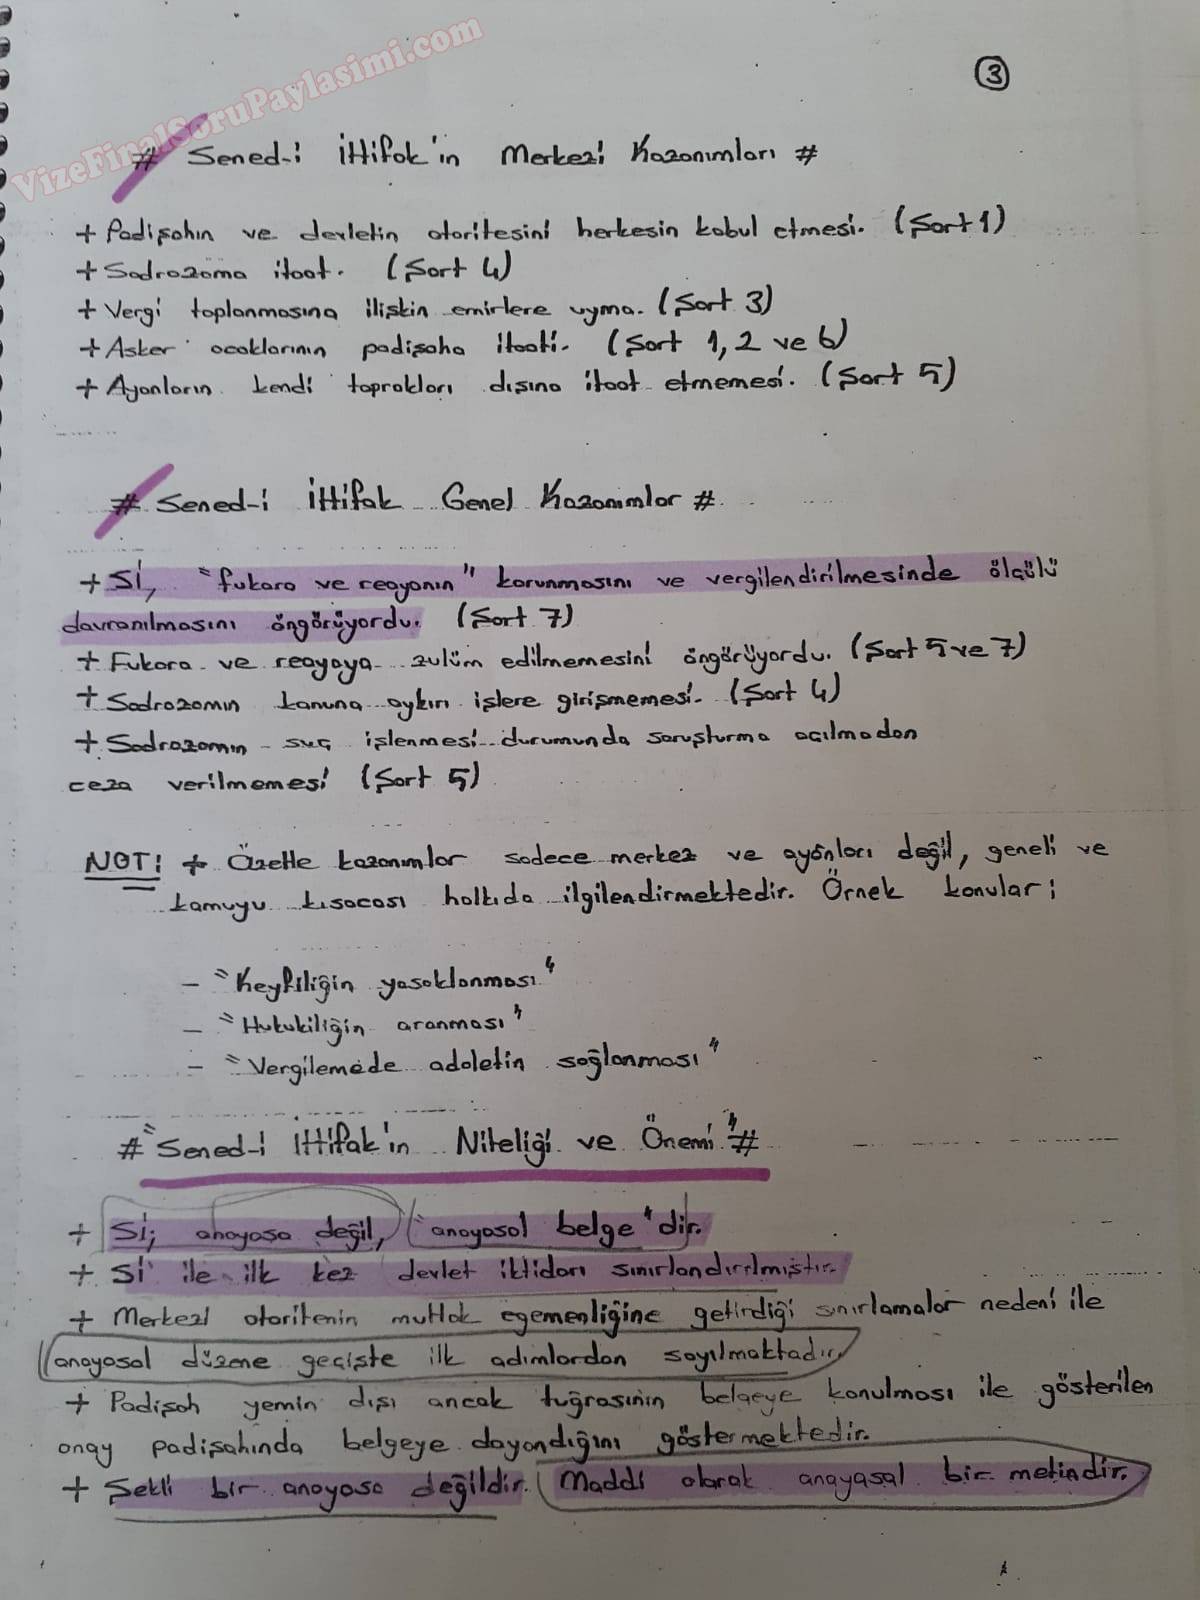 VizeFinalSoruPaylasimi.com
3
# Sened-i İttifak'ın Merkezi Kazanımları #
+ Padişahın ve devletin otoritesini herkesin kabul etmesi. (Şart 1)
+ Sadrazama itaat. (Şart 4)
+ Vergi toplanmasına ilişkin emirlere uyma. (Şart 3)
+ Asker ocaklarının padişaha itaati. (Şart 1, 2 ve 6)
+ Ayanların kendi toprakları dışına itaat etmemesi. (Şart 5)
# Sened-i İttifak Genel Kazanımlar #
+ Sİ, "fukara ve reayanın" korunmasını ve vergilendirilmesinde ölçülü
davranılmasını öngörüyordu. (Şart 7)
+ Fukara ve reayaya zulüm edilmemesini öngörüyordu. (Şart 5 ve 7)
+ Sadrazamın kanuna aykırı işlere girişmemesi. (Şart 4)
+ Sadrazamın suç işlenmesi durumunda soruşturma açılmadan
ceza verilmemesi (Şart 5)
NOT: + Özetle kazanımlar sadece merkez ve ayânları değil, geneli ve
kamuyu kısacası halkıda ilgilendirmektedir. Örnek konular;
- "Keyfiliğin yasaklanması"
- "Hukukiliğin aranması"
- "Vergilemede adaletin sağlanması"
# "Sened-i İttifak'ın Niteliği ve Önemi" #
+ Sİ; anayasa değil, "anayasal belge"dir.
+ Sİ ile ilk kez devlet iktidarı sınırlandırılmıştır.
+ Merkezi otoritenin mutlak egemenliğine getirdiği sınırlamalar nedeni ile
anayasal düzene geçişte ilk adımlardan sayılmaktadır.
+ Padişah yemin dışı ancak tuğrasının belgeye konulması ile gösterilen
onay padişahında belgeye dayandığını göstermektedir.
+ Şekli bir anayasa değildir. Maddi olarak anayasal bir metindir.